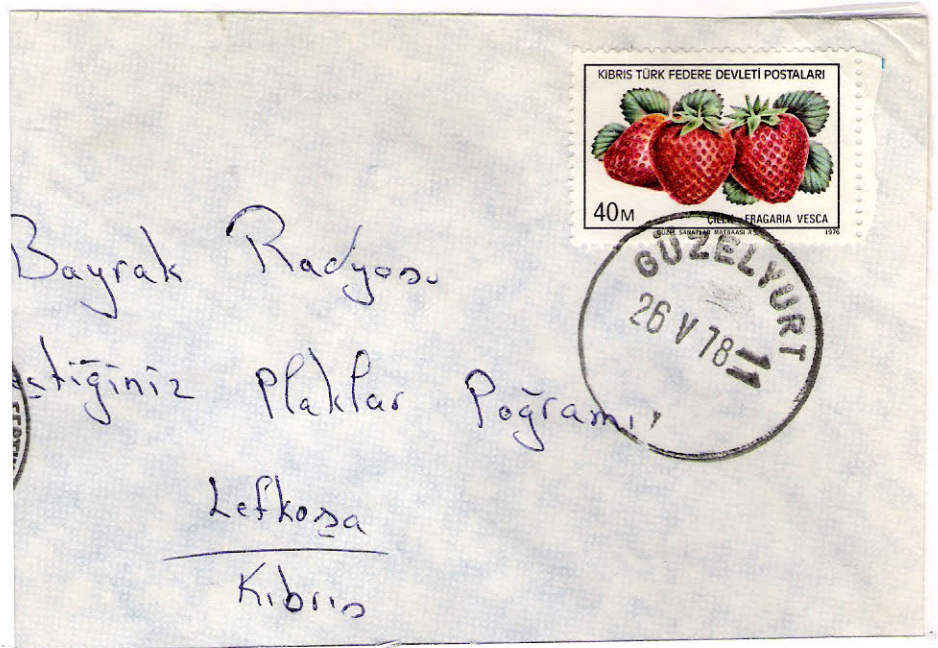 KIBRIS TÜRK FEDERE DEVLETİ POSTALARI
40M
ÇİLEK - FRAGARIA VESCA
GÜZEL SANATLAR MATBAASI A.Ş.
1976
GÜZELYURT
26 V 78
11
Bayrak Radyosu
eştiğiniz Plaklar Poğramı
Lefkoşa
Kıbrıs